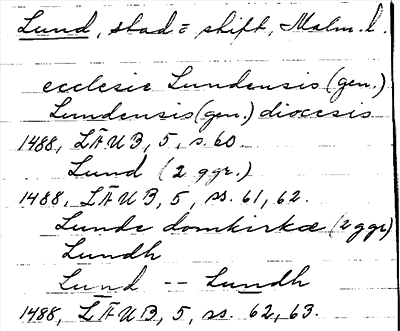 Lund, stad = stift, Malm. l.
ecclesie Lundensis (gen.)
Lundensis (gen.) diocesis
1488, LÄUB, 5, s. 60
Lund (2 ggr.)
1488, LÄUB, 5, ss. 61, 62.
Lunde domkirkæ (2 ggr)
Lundh
Lund -- Lundh
1488, LÄUB, 5, ss. 62, 63.